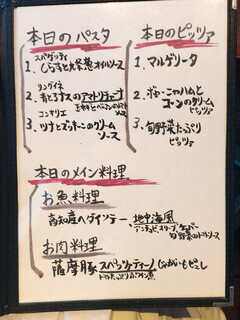 本日のパスタ
スパゲッティ
1、しらすと大葉 オイルソース
リングイネ
2、青とうナスのアマトリチャーナ
コンキリエ
3、ツナとズッキーニのクリーム
ソース
本日のピッツァ
1、マルゲリータ
2、ボローニャハムと
コーンのクリーム
ピッツァ
3、旬野菜たっぷり
ピッツァ
本日のメイン料理
お魚料理
高知産ヘダイソテー 地中海風
アンチョビ、オリーブ、ケッパー
旬野菜のトマトソース
お肉料理
薩摩豚 スペッツァティーノ じゃがいもピし
トマトたっぷり